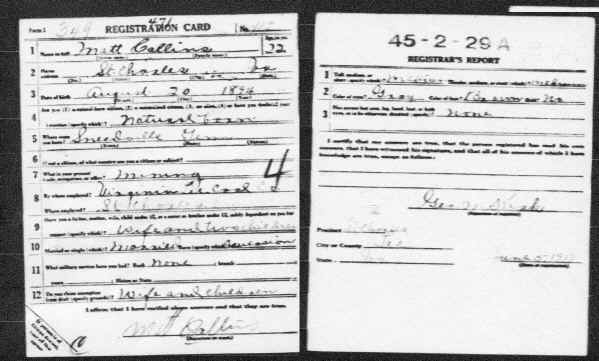 Form 1 349 REGISTRATION CARD 476 No.
1 Name in full Milt Collins Age, in yrs. 22
2 Home address St Charles Va
3 Date of birth August 20 1894
4 Are you (1) a natural-born citizen, (2) a naturalized citizen, (3) an alien, (4) or have you declared your intention (specify which)? Natural born
5 Where were you born? Sneedville Tenn
6 If not a citizen, of what country are you a citizen or subject?
7 What is your present trade, occupation, or office? Mining 4
8 By whom employed? Virginia Lee Coal Co
Where employed? St Charles
9 Have you a father, mother, wife, child under 12, or a sister or brother under 12, solely dependent on you for support (specify which)? Wife and two children
10 Married or single (which)? Married Race (specify which)? Caucasian
11 What military service have you had? Rank None branch
years Nation or State
12 Do you claim exemption from draft (specify grounds)? Wife and Children
I affirm that I have verified above answers and that they are true.
Milt Collins
(Signature or mark)
45-2-29 A
REGISTRAR'S REPORT
1 Tall, medium, or short (specify which)? Slender, medium, or stout (which)?
2 Color of eyes? Gray Color of hair? Brown No
3 None
I certify that my answers are true, that the person registered has read his own answers, that I have witnessed his signature, and that all of his answers of which I have knowledge are true, except as follows:
(Signature of registrar)
Precinct St Charles
City or County Lee
State Va June 5 1917
(Date of registration)